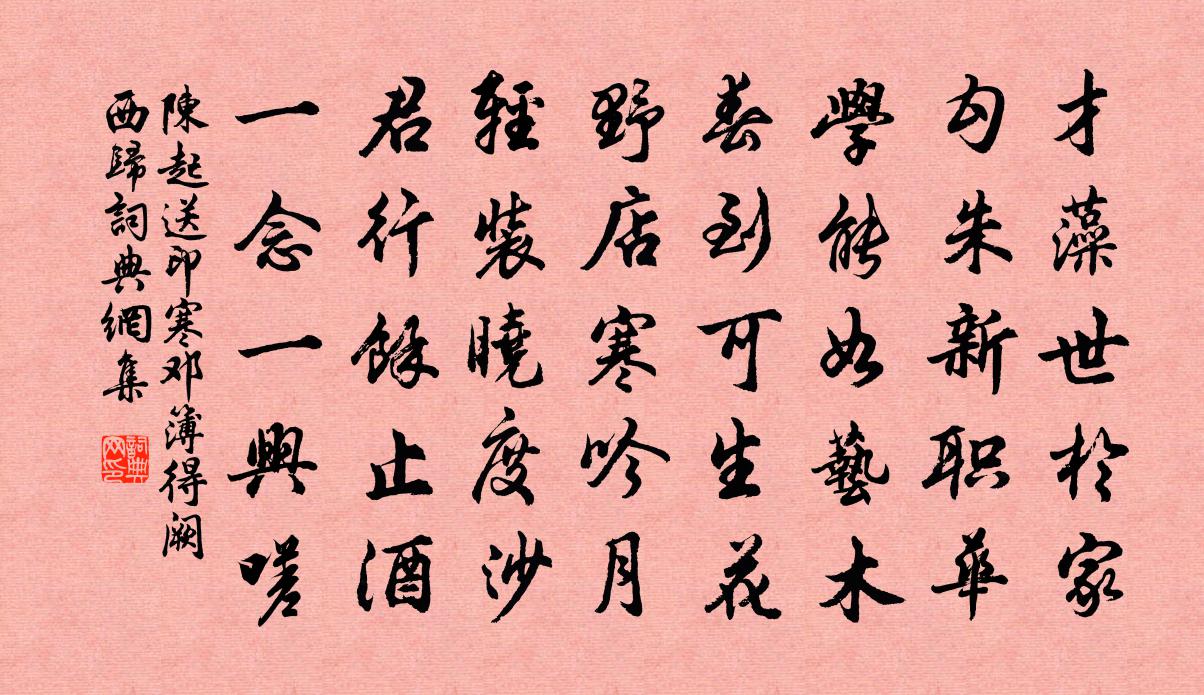 才藻世於家
勾朱新职華
學能如藝木
春到可生花
野店寒吟月
輕裝曉度沙
君行餘止酒
一念一興嗟
陳起送印寒邓簿得阙
西歸詞典網集
詞典网印